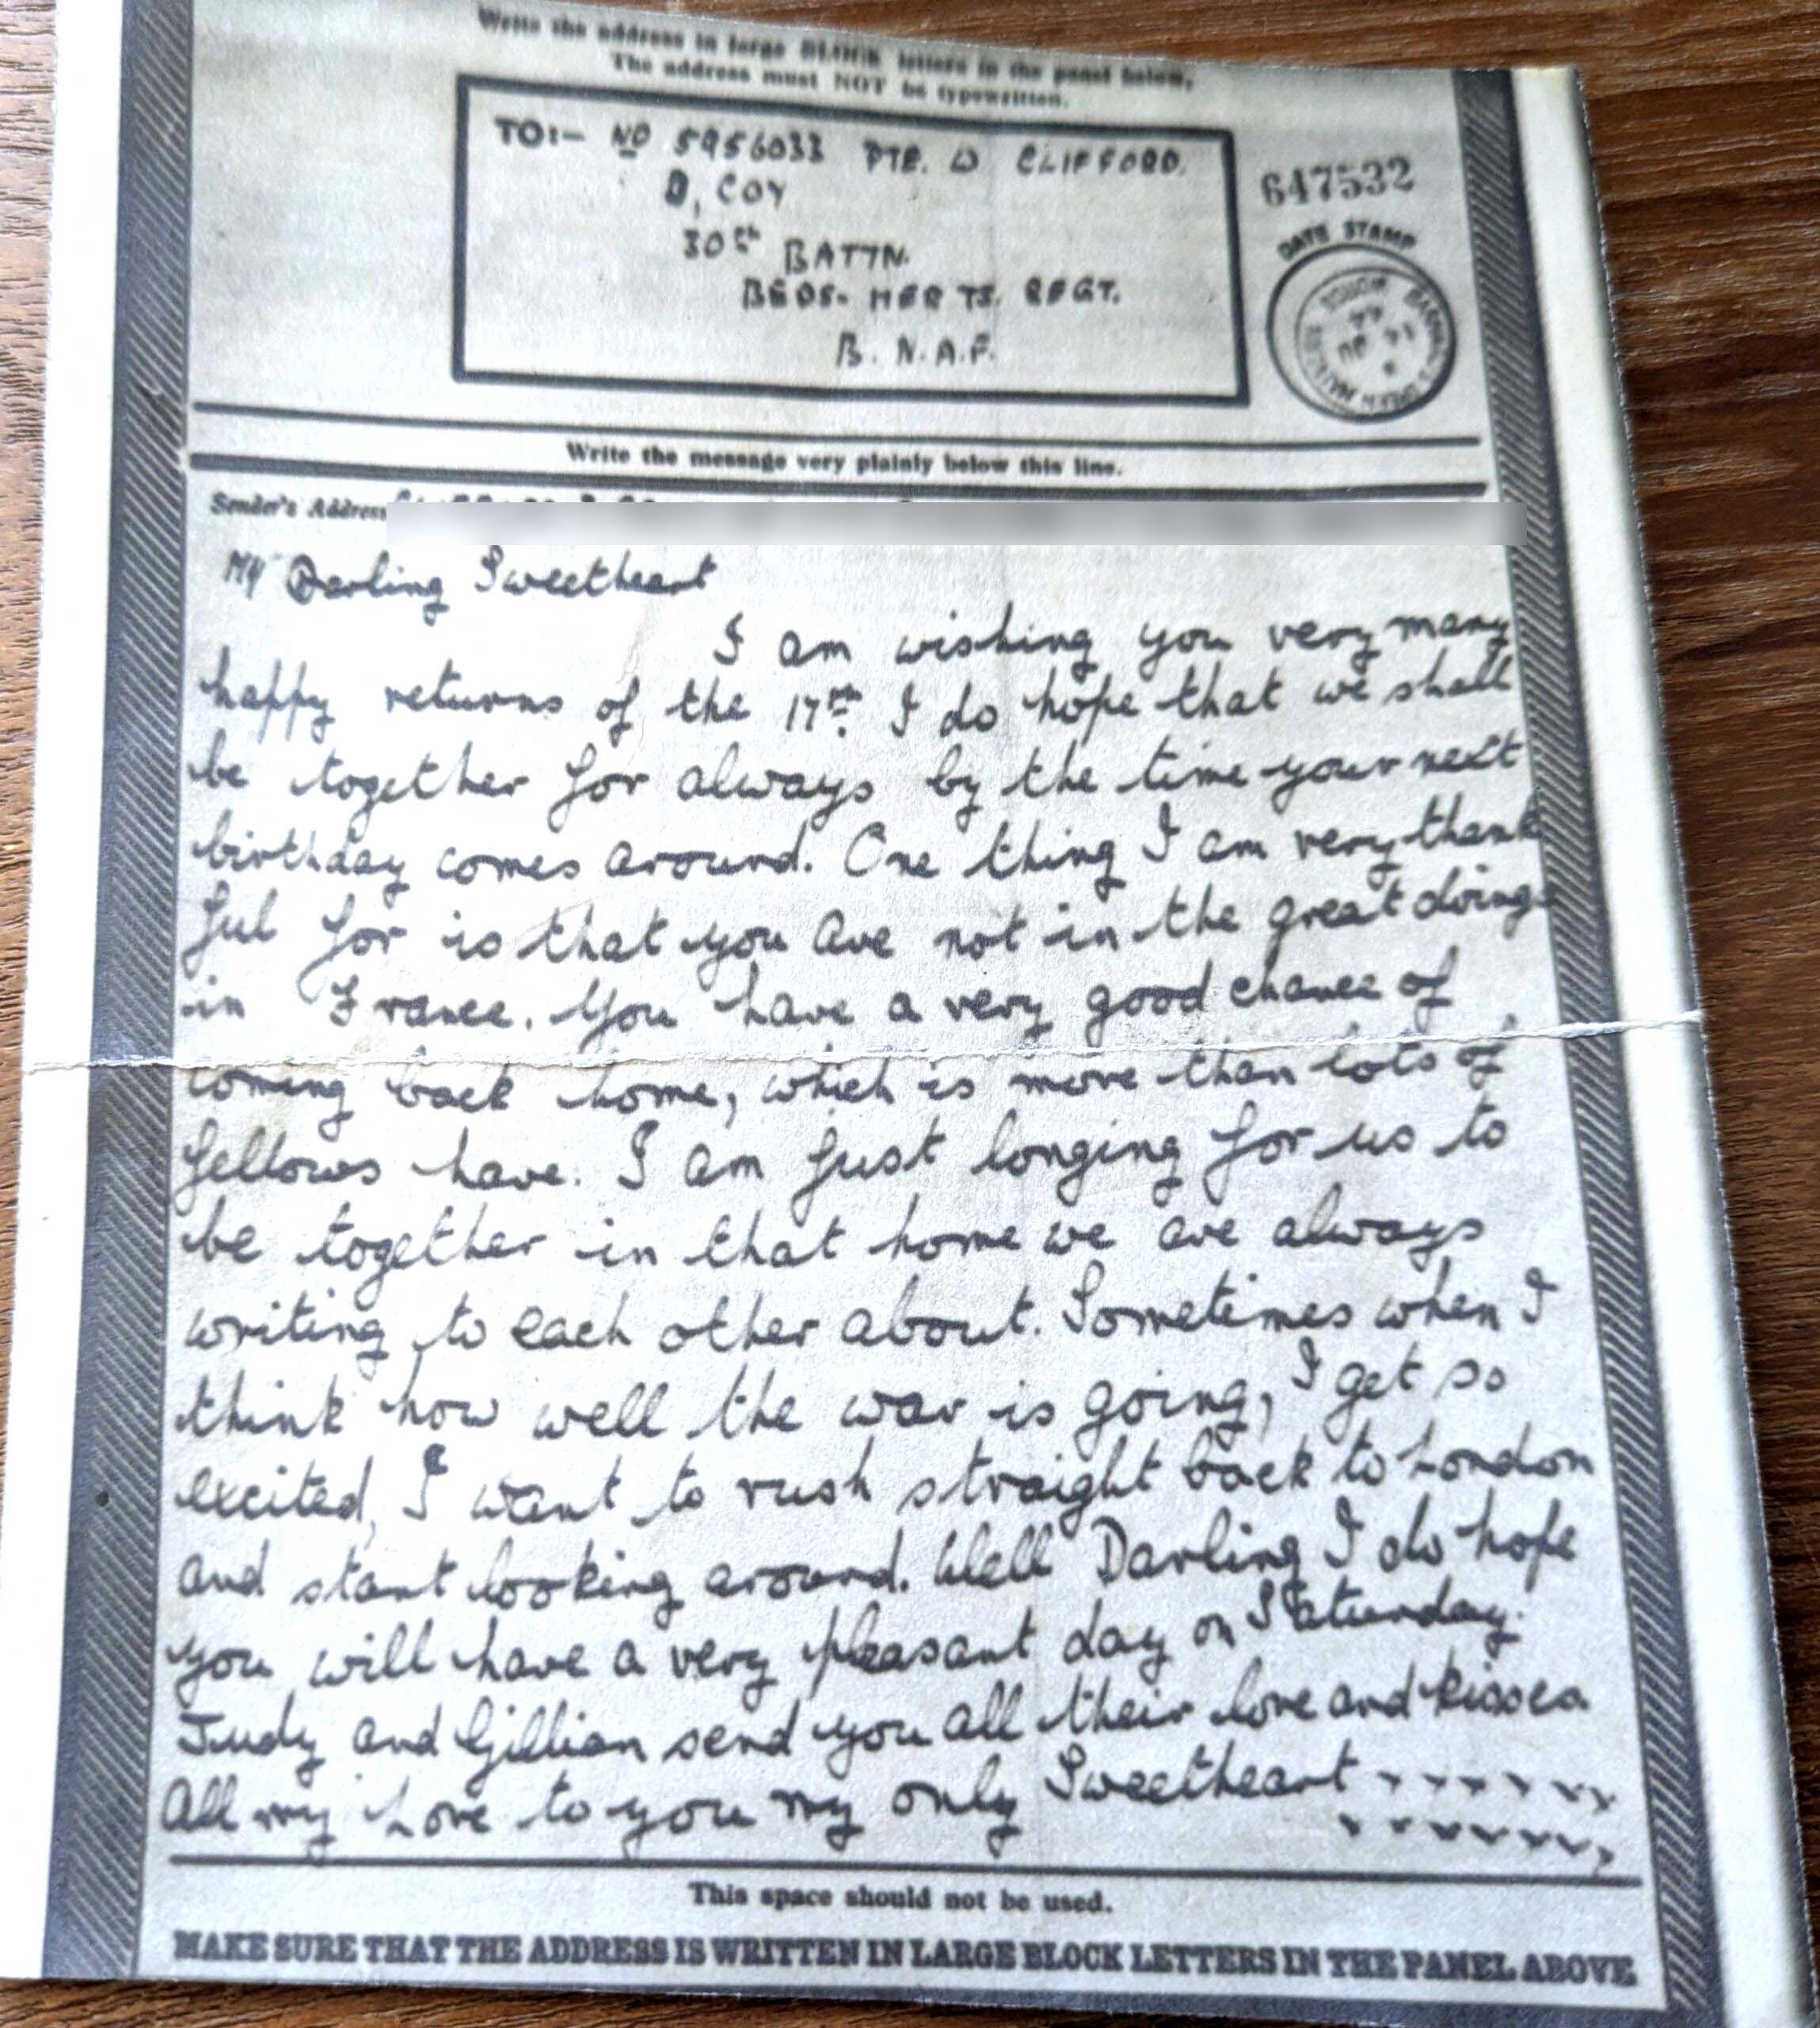 Write the address in large BLOCK letters in the panel below.
The address must NOT be typewritten.
TO:- No 5956033 PTE. W CLIFFORD.
D, COY
30th BATTN.
BEDS- HERTS. REGT.
B. N. A. F.
647532
DATE STAMP
Write the message very plainly below this line.
Sender's Address
My Darling Sweetheart
I am wishing you very many
happy returns of the 17th. I do hope that we shall
be together for always by the time your next
birthday comes around. One thing I am very thank
ful for is that you are not in the great doings
in France. You have a very good chance of
coming back home, which is more than lots of
fellows have. I am just longing for us to
be together in that home we are always
writing to each other about. Sometimes when I
think how well the war is going, I get so
excited, I want to rush straight back to London
and start looking around. Well Darling I do hope
you will have a very pleasant day on Saturday.
Judy and Gillian send you all their love and kisses
All my Love to you my only Sweetheart x x x x x x x
x x x x x x x
This space should not be used.
MAKE SURE THAT THE ADDRESS IS WRITTEN IN LARGE BLOCK LETTERS IN THE PANEL ABOVE